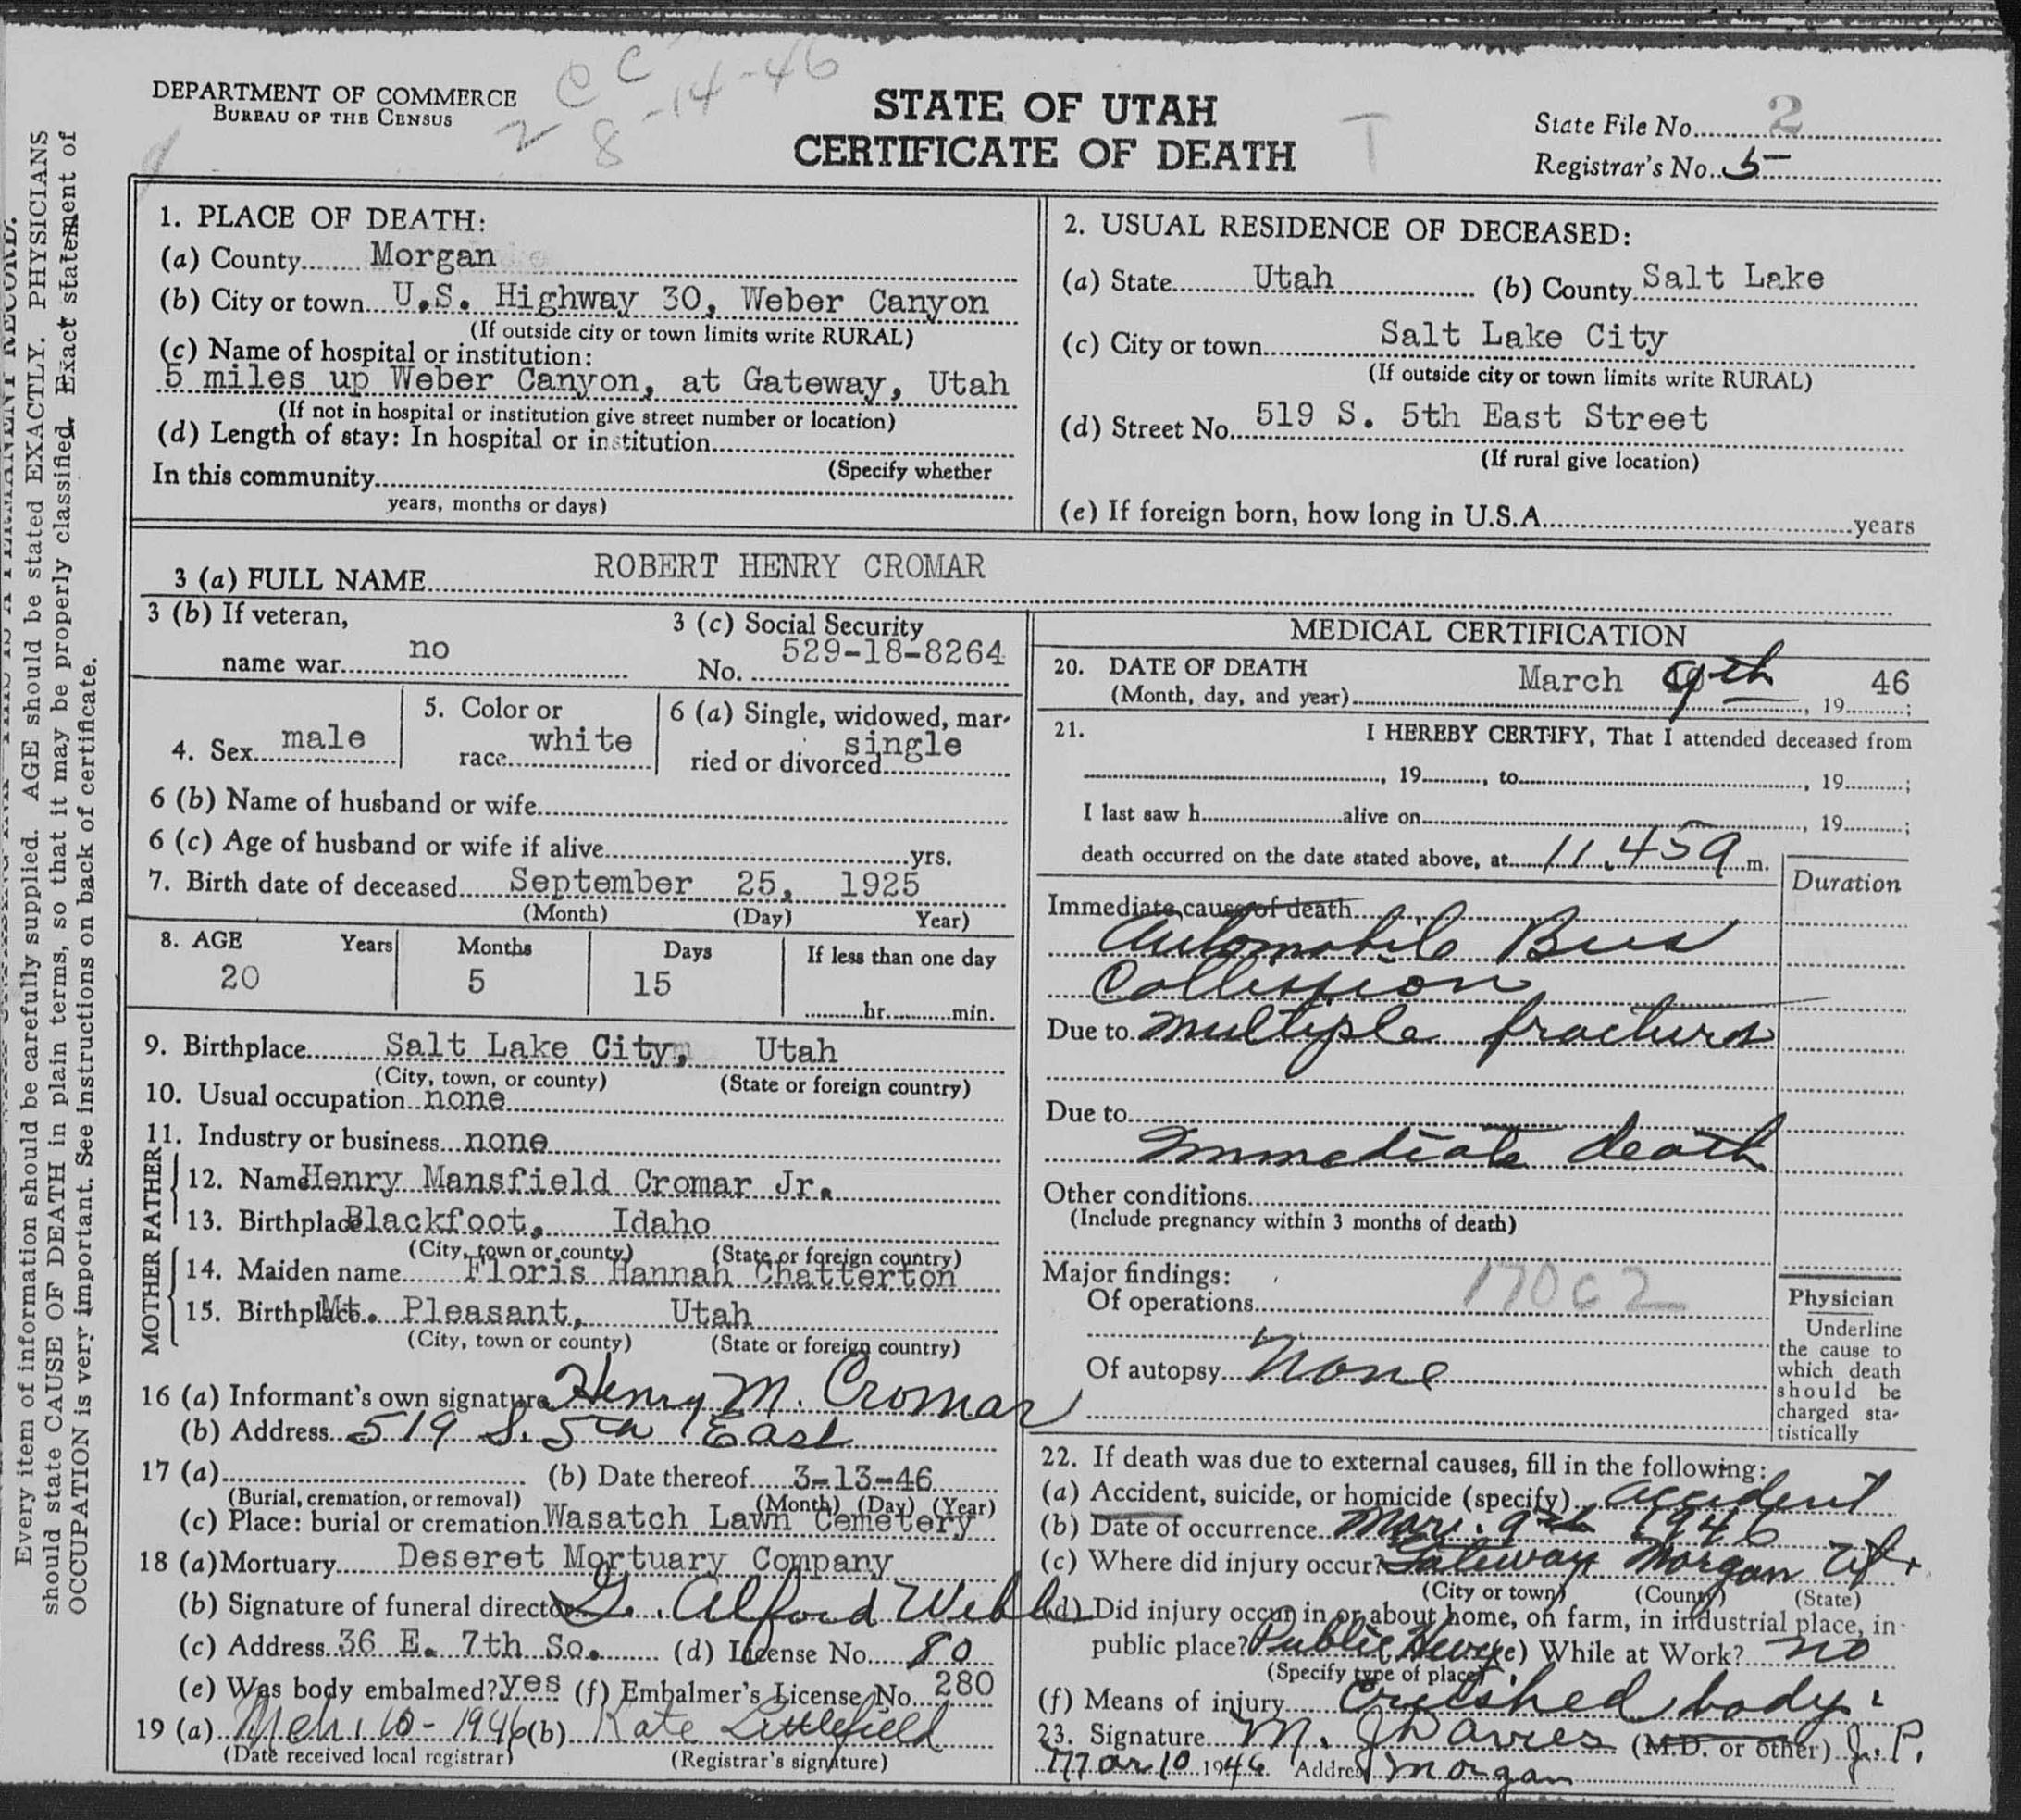 CC
2 8-14-46
DEPARTMENT OF COMMERCE
BUREAU OF THE CENSUS
STATE OF UTAH
CERTIFICATE OF DEATH
T
State File No. 2
Registrar's No. 5
Every item of information should be carefully supplied. AGE should be stated EXACTLY. PHYSICIANS
should state CAUSE OF DEATH in plain terms, so that it may be properly classified. Exact statement of
OCCUPATION is very important. See instructions on back of certificate.
1. PLACE OF DEATH:
(a) County Morgan
(b) City or town U.S. Highway 30, Weber Canyon
(If outside city or town limits write RURAL)
(c) Name of hospital or institution:
5 miles up Weber Canyon, at Gateway, Utah
(If not in hospital or institution give street number or location)
(d) Length of stay: In hospital or institution
(Specify whether
In this community
years, months or days)
2. USUAL RESIDENCE OF DECEASED:
(a) State Utah (b) County Salt Lake
(c) City or town Salt Lake City
(If outside city or town limits write RURAL)
(d) Street No. 519 S. 5th East Street
(If rural give location)
(e) If foreign born, how long in U.S.A. years
3 (a) FULL NAME ROBERT HENRY CROMAR
3 (b) If veteran,
name war no
3 (c) Social Security
No. 529-18-8264
4. Sex male
5. Color or
race white
6 (a) Single, widowed, mar-
ried or divorced single
6 (b) Name of husband or wife
6 (c) Age of husband or wife if alive yrs.
7. Birth date of deceased September 25, 1925
(Month) (Day) Year)
8. AGE Years Months Days If less than one day
20 5 15
hr. min.
9. Birthplace Salt Lake City, Utah
(City, town, or county) (State or foreign country)
10. Usual occupation none
11. Industry or business none
FATHER
12. Name Henry Mansfield Cromar Jr.
13. Birthplace Blackfoot, Idaho
(City, town or county) (State or foreign country)
MOTHER
14. Maiden name Floris Hannah Chatterton
15. Birthplace Mt. Pleasant, Utah
(City, town or county) (State or foreign country)
16 (a) Informant's own signature Henry M. Cromar
(b) Address 519 S. 5th East
17 (a) (b) Date thereof 3-13-46
(Burial, cremation, or removal) (Month) (Day) (Year)
(c) Place: burial or cremation Wasatch Lawn Cemetery
18 (a) Mortuary Deseret Mortuary Company
(b) Signature of funeral director G. Alford Webb
(c) Address 36 E. 7th So. (d) License No. 80
(e) Was body embalmed? yes (f) Embalmer's License No. 280
19 (a) Mch. 10 - 1946 (b) Kate Littlefield
(Date received local registrar) (Registrar's signature)
MEDICAL CERTIFICATION
20. DATE OF DEATH
(Month, day, and year) March 9th, 1946;
21. I HEREBY CERTIFY, That I attended deceased from
, 19 , to , 19 ;
I last saw h alive on , 19 ;
death occurred on the date stated above, at 11.45 a m.
Duration
Immediate cause of death
Automobile Bus
Collission
Due to multiple fractures
Due to
Immediate death
Other conditions
(Include pregnancy within 3 months of death)
Major findings:
Of operations 170c2
Of autopsy None
Physician
Underline
the cause to
which death
should be
charged sta-
tistically
22. If death was due to external causes, fill in the following:
(a) Accident, suicide, or homicide (specify) accident
(b) Date of occurrence Mar. 9th 1946
(c) Where did injury occur? Gateway Morgan Ut
(City or town) (County) (State)
(d) Did injury occur in or about home, on farm, in industrial place, in
public place? Public (e) While at Work? no
(Specify type of place)
(f) Means of injury Crushed body
23. Signature M. J. Davies (M.D. or other) J.P.
Mar 10 1946 Address Morgan